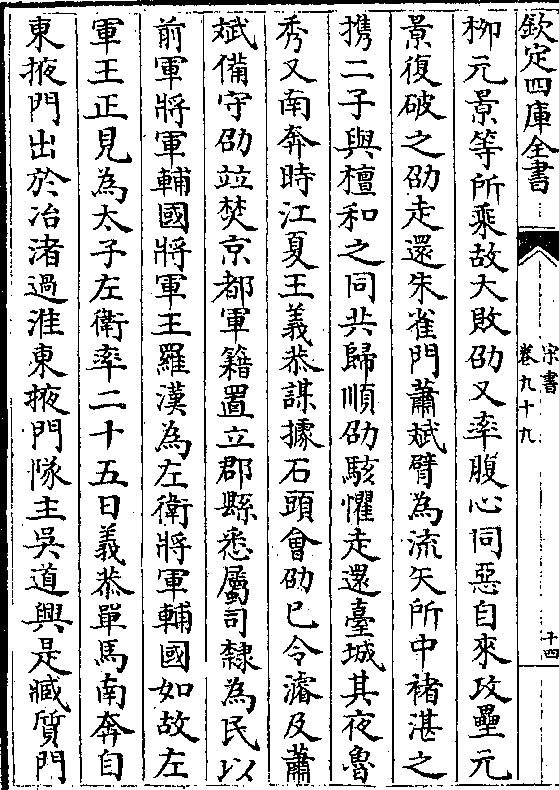 欽定四庫全書
宋書
卷九十九
十四
柳元景等所乘故大敗劭又率腹心同惡自來攻壘元
景復破之劭走還朱雀門蕭斌臂為流矢所中褚湛之
携二子與檀和之同共歸順劭駭懼走還臺城其夜魯
秀又南奔時江夏王義恭謀據石頭會劭已令濬及蕭
斌備守劭竝焚京都軍籍置立郡縣悉屬司隸為民以
前軍將軍輔國將軍王羅漢為左衛將軍輔國如故左
軍王正見為太子左衛率二十五日義恭單馬南奔自
東掖門出於冶渚過淮東掖門隊主吳道興是臧質門